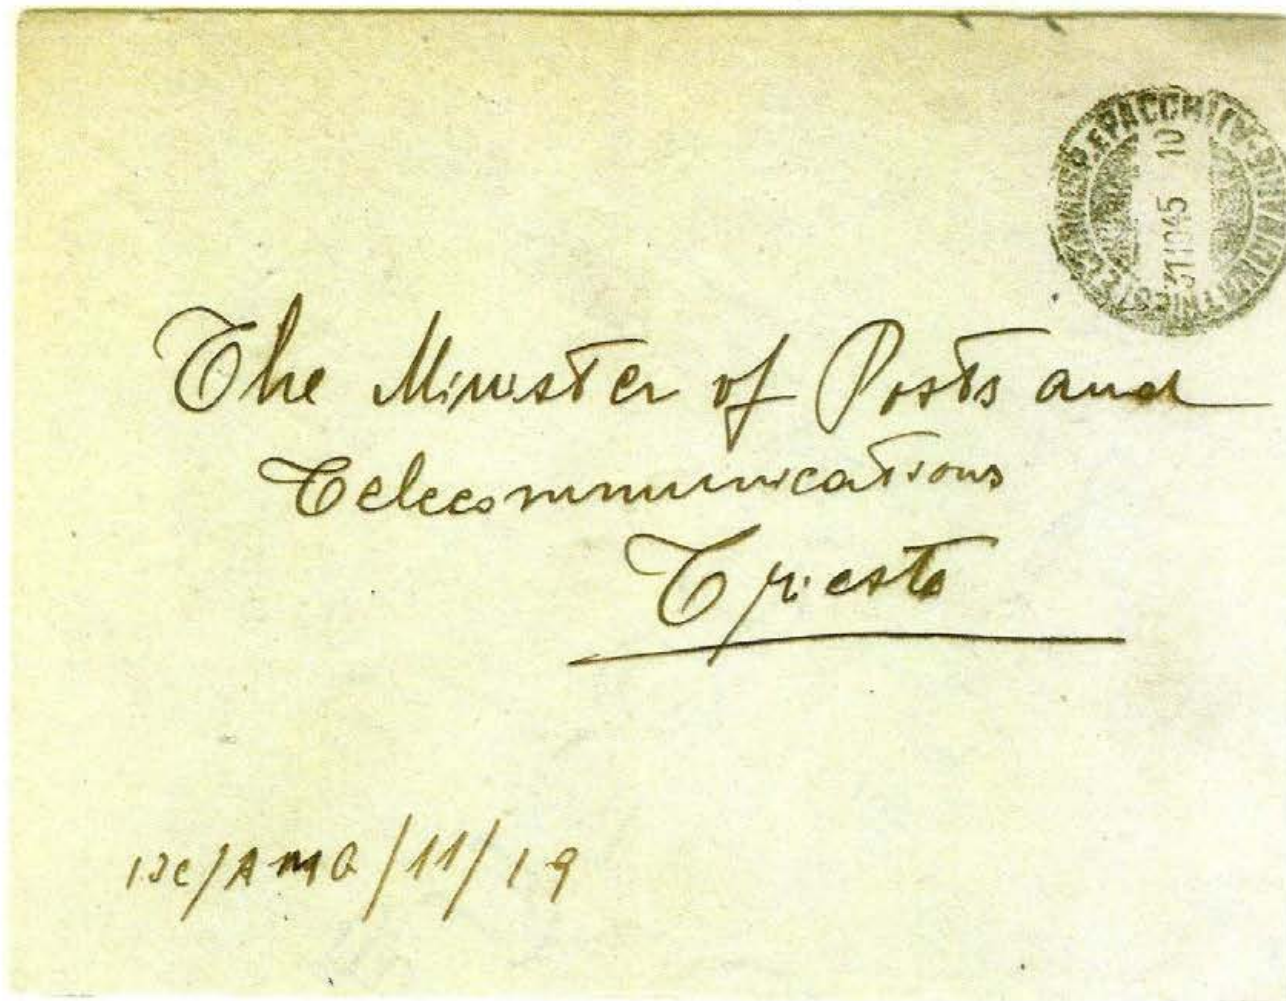 31.10.45 10
The Minister of Posts and
Telecommunications
Trieste
/AMG/11/19